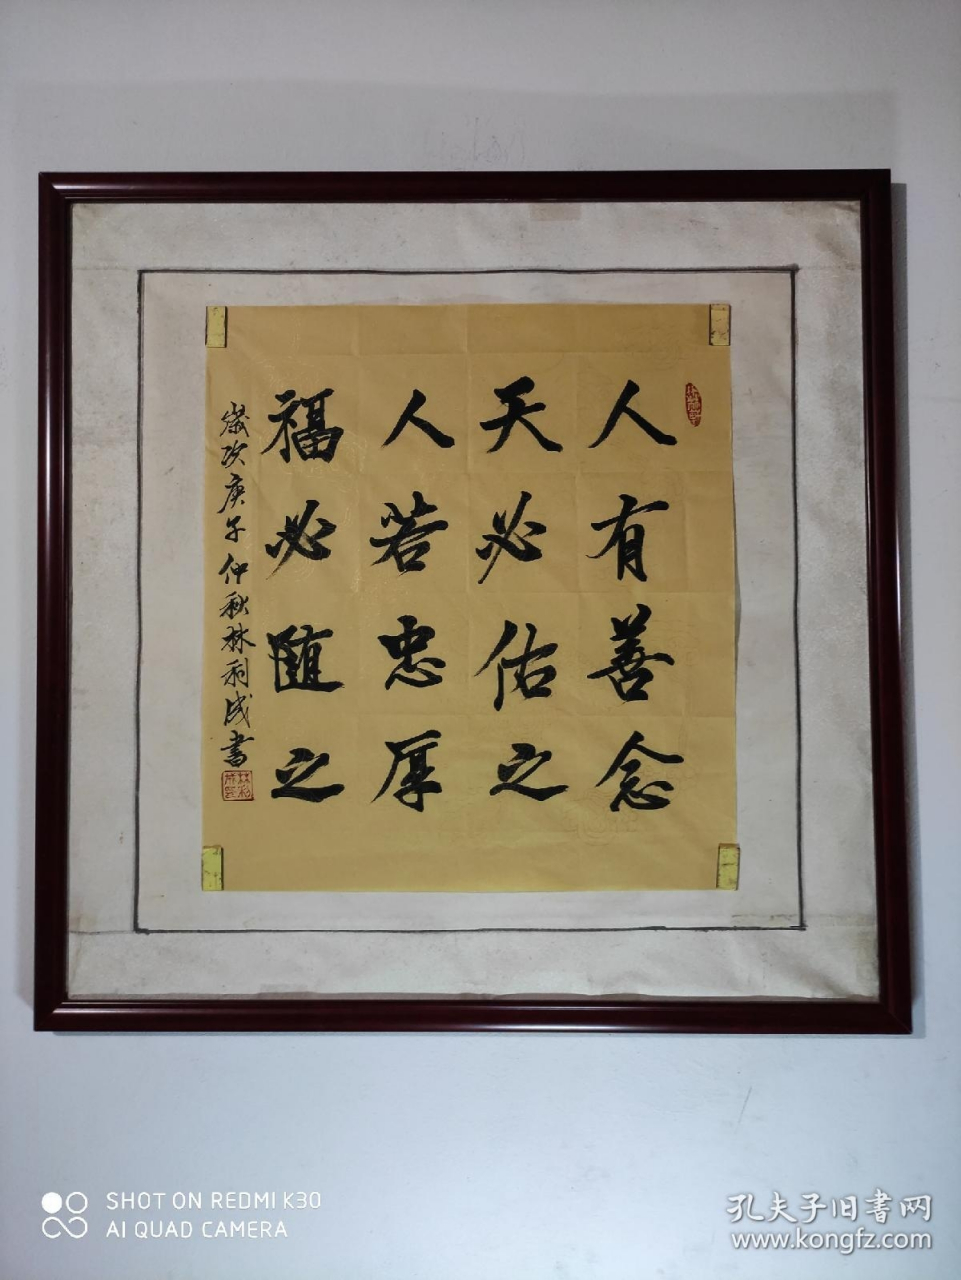 人有善念
天必佑之
人若忠厚
福必随之
歲次庚午仲秋林利成書
SHOT ON REDMI K30
AI QUAD CAMERA
孔夫子旧书网
www.kongfz.com